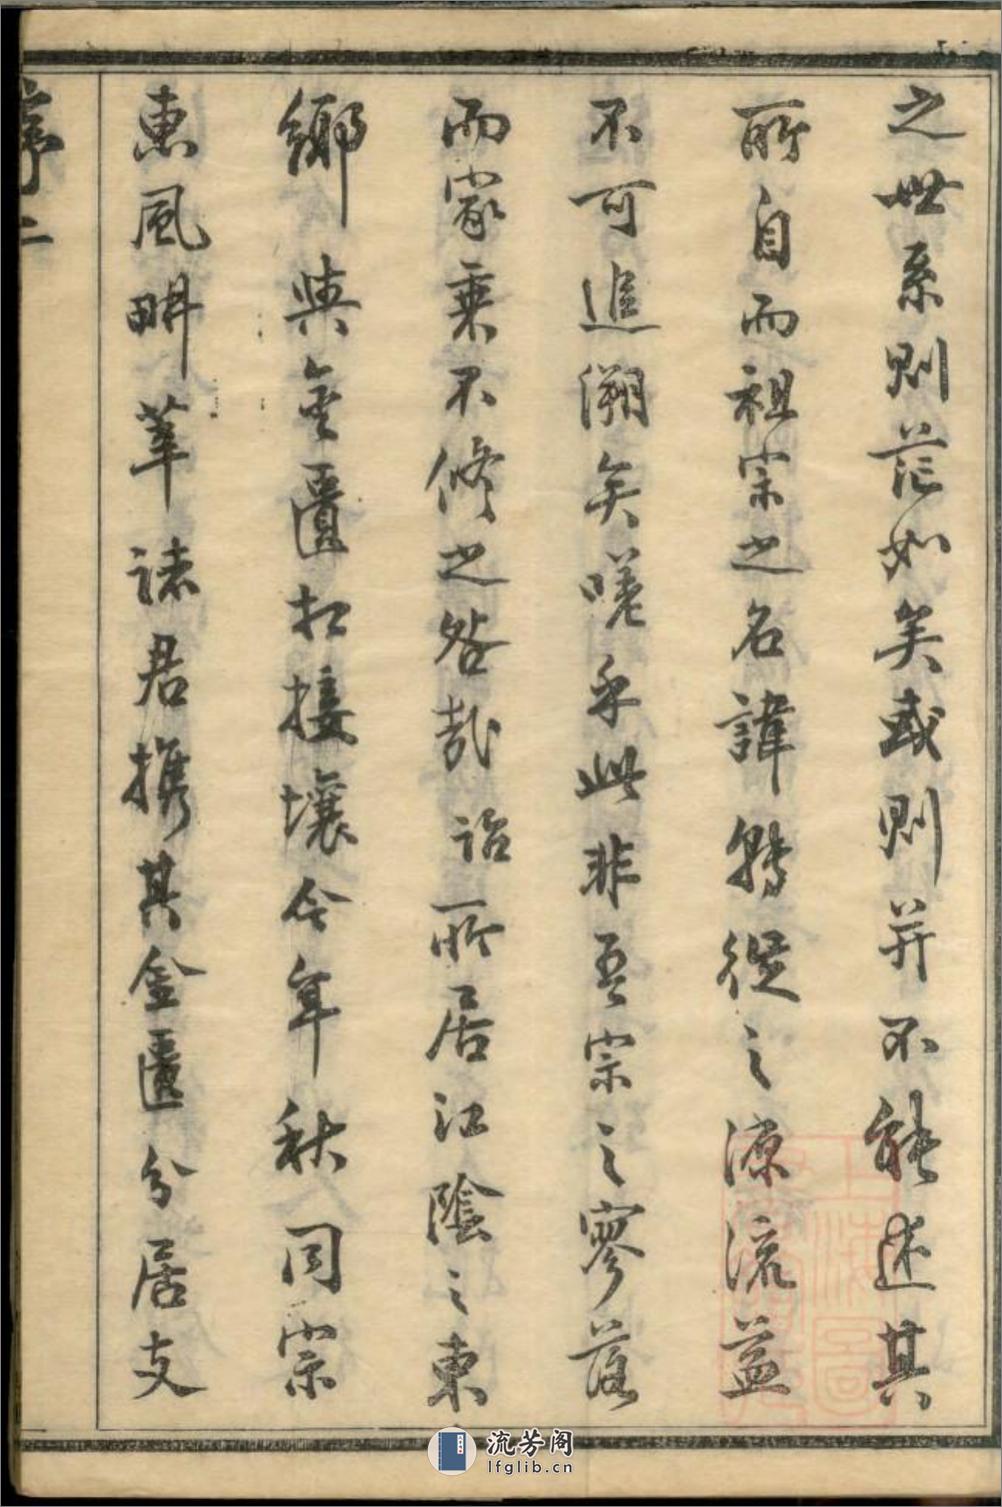 之世系則茫如矣或則并不能述其
所自而祖宗之名諱鮮從之源流益
不可追溯矣嗟乎此非吾宗之寥落
而家乘不修之咎哉詒所居江陰之東
鄉與金匱相接壤今年秋同宗
惠風畊莘諸君攜其金匱分居支
序 二
流芳阁
lfglib.cn